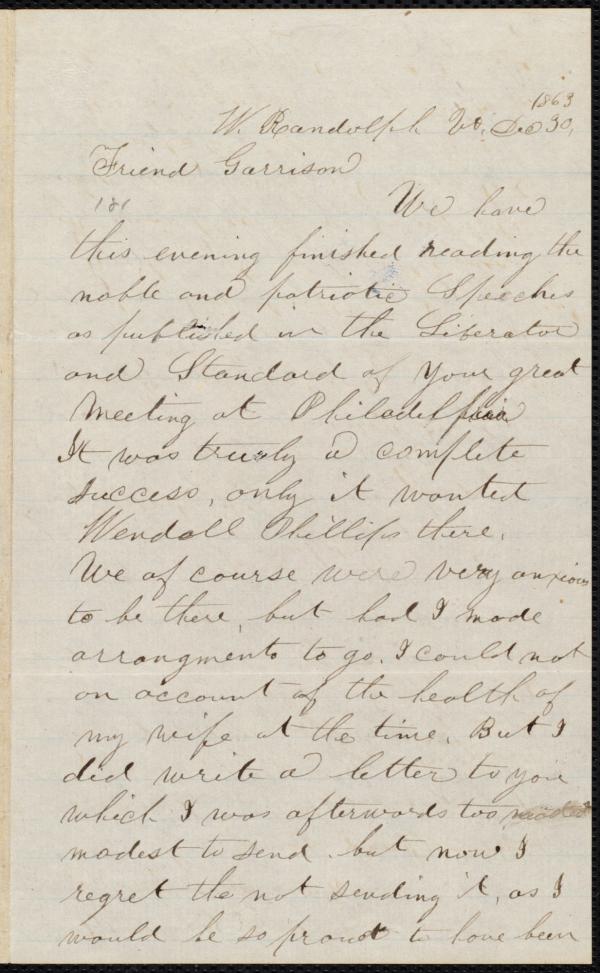 1863
W. Randolph Vt. Dec 30,
Friend Garrison
We have
this evening finished reading the
noble and patriotic Speeches
as published in the Liberator
and Standard of your great
Meeting at Philadelphia
It was truely a complete
success, only it wanted
Wendall Phillips there.
We of course were very anxious
to be there, but had I made
arrangments to go. I could not
on account of the health of
my wife at the time. But I
did write a letter to you
which I was afterwards too
modest to send. but now I
regret the not sending it, as I
would be so proud to have been